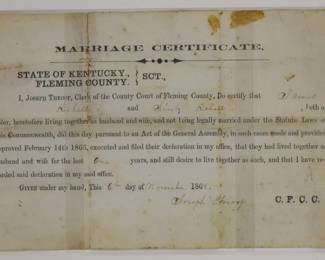 MARRIAGE CERTIFICATE,
STATE OF KENTUCKY, } SCT.,
FLEMING COUNTY.
I, JOSEPH THROOP, Clerk of the County Court of Fleming County, Do certify that
and
, both
heretofore living together as husband and wife, and not being legally married under the Statute Laws
his Commonwealth, did this day pursuant to an Act of the General Assembly, in such cases made and provided
pproved February 14th 1866, executed and filed their declaration in my office, that they had lived together as
usband and wife for the last One years, and still desire to live together as such, and that I have re-
orded said declaration in my said office.
GIVEN under my hand, This 6th day of November 186
Joseph Throop C. F. C. C.